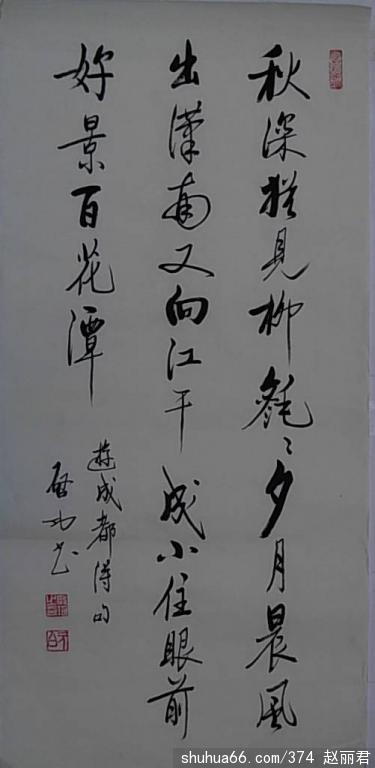 秋深猶見柳毿〻夕月晨風
出漢南又向江干成小住眼前
好景百花潭
遊成都得句
啟功書
shuhua66.com/374 赵丽君